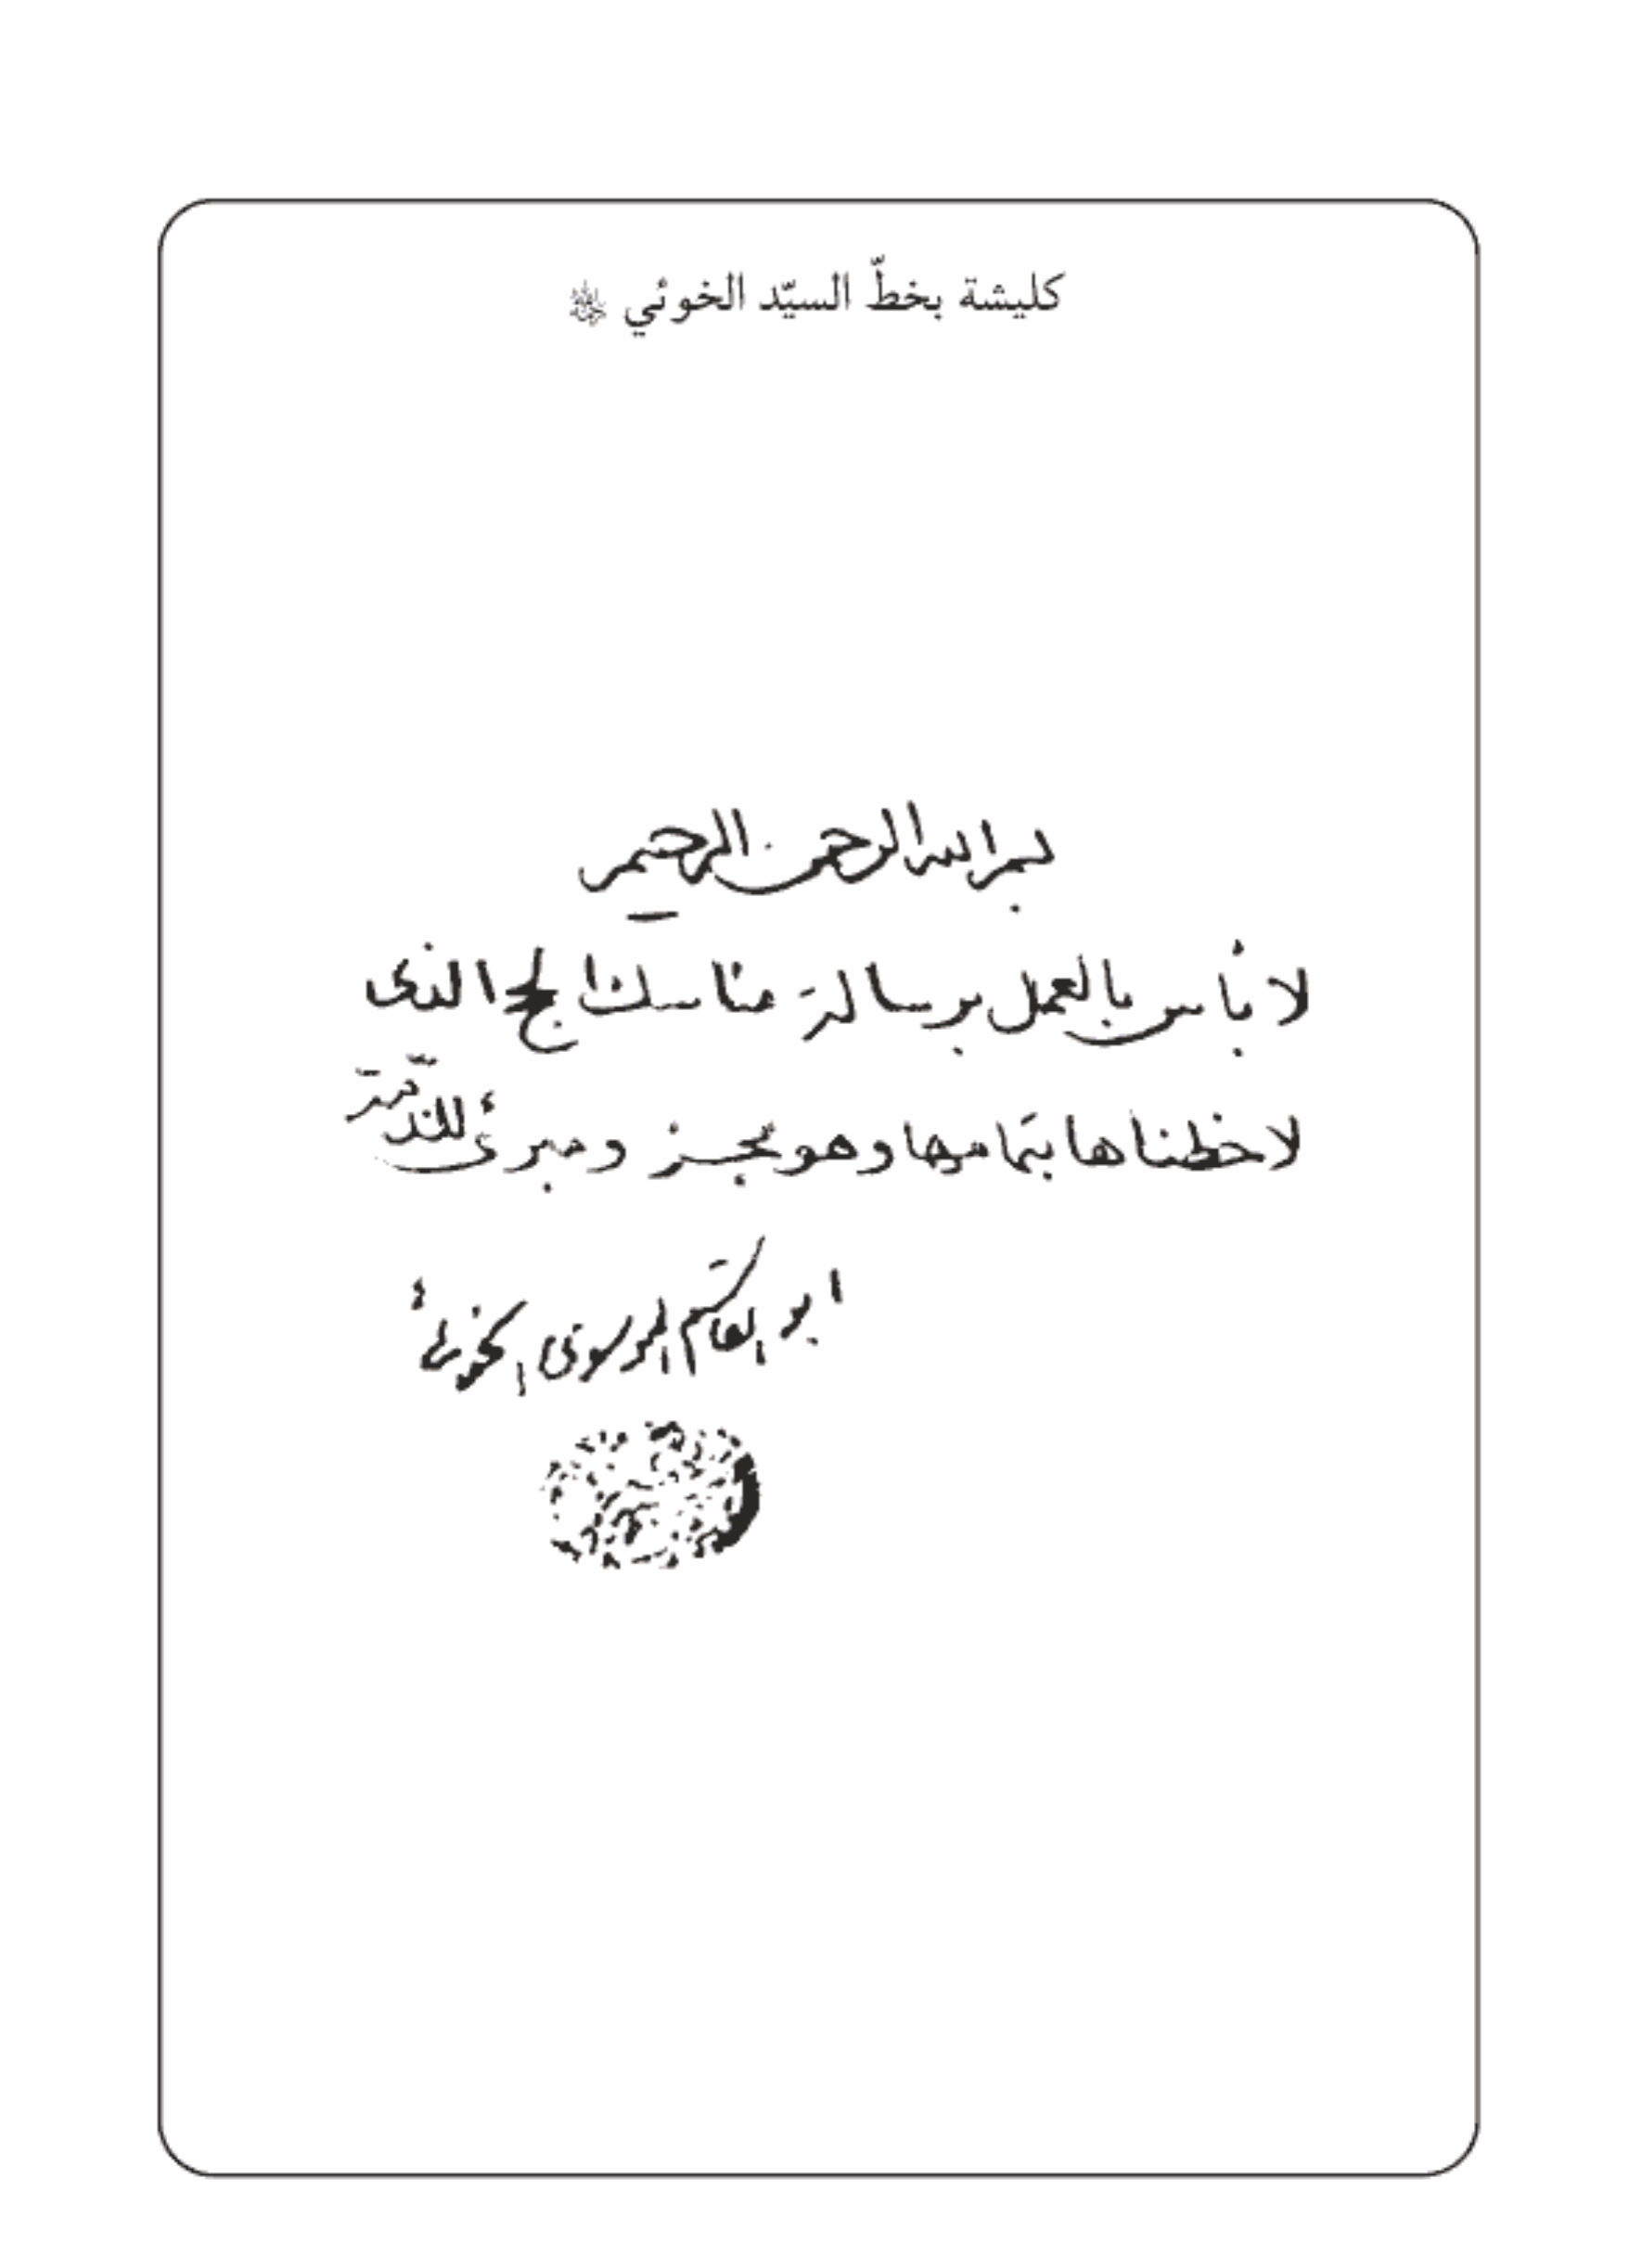 كليشة بخطّ السيّد الخوئي ﵀
بسم الله الرحمن الرحيم
لا بأس بالعمل برسالة مناسك الحج الذى
لاحظناها بتمامها وهو مجز ومبرئ للذمّة
ابو القاسم الموسوى الخوئى